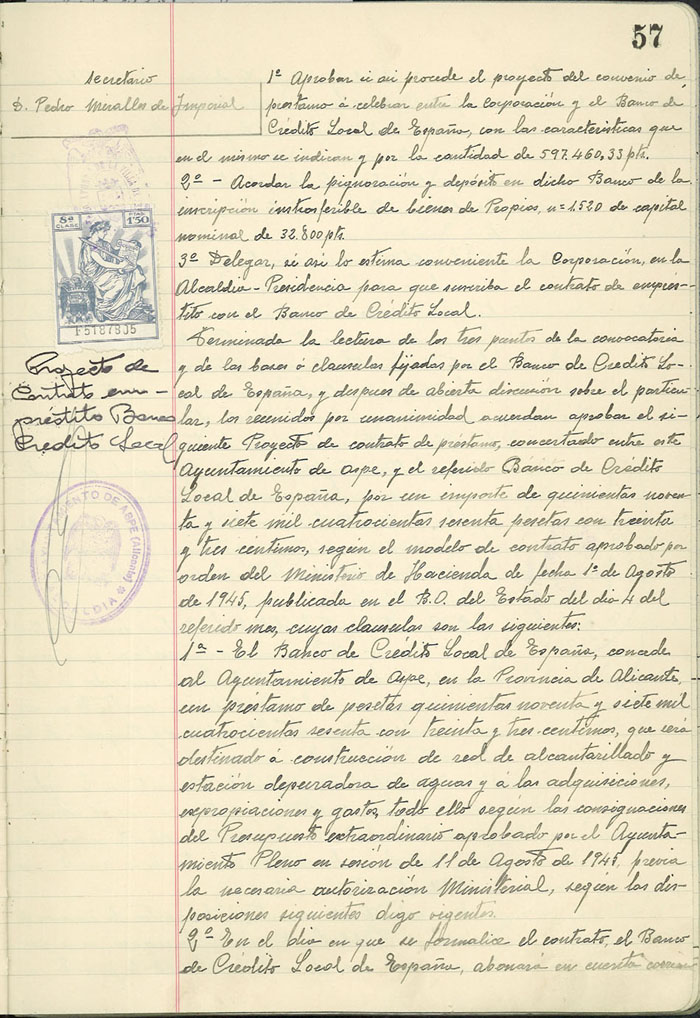 57
Secretario
D. Pedro Miralles de Imperial
1º Aprobar si asi procede el proyecto del convenio de
préstamo á celebrar entre la Corporación y el Banco de
Crédito Local de España, con las caracteristicas que
en el mismo se indican y por la cantidad de 597.460,33 pts.
2º - Acordar la pignoración y depósito en dicho Banco de la
inscripción instrosferible de bienes de Propios, nº 1520 de capital
nominal de 32.800 pts.
3º Delegar, si asi lo estema conveniente la Corporación, en la
Alcaldia - Presidencia para que suscriba el contrato de emprés-
tito con el Banco de Crédito Local.
Terminada la lectura de los tres puntos de la convocatoria
y de las bases ó clausulas fijadas por el Banco de Credito Lo-
cal de España, y despues de abierta discusión sobre el particu-
lar, los reunidos por unanimidad acuerdan aprobar el si-
guiente Proyecto de contrato de préstamo, concertado entre este
Ayuntamiento de Aspe, y el referido Banco de Crédito
Local de España, por un importe de quinientas noven-
ta y siete mil cuatrocientas sesenta pesetas con treinta
y tres centimos, según el modelo de contrato aprobado por
orden del Ministerio de Hacienda de fecha 1º de Agosto
de 1945, publicada en el B.O. del Estado del dia 4 del
referido mes, cuyas clausulas son las siguientes:
1ª - El Banco de Crédito Local de España, concede
al Ayuntamiento de Aspe, en la Provincia de Alicante,
un préstamo de pesetas quinientas noventa y siete mil
cuatrocientas sesenta con treinta y tres centimos, que será
destinado á construcción de red de alcantarillado y
estación depuradora de aguas y á las adquisiciones,
expropiaciones y gastos, todo ello según las consignaciones
del Presupuesto extraordinario aprobado por el Ayunta-
miento Pleno en sesión de 11 de Agosto de 1945, previa
la necesaria autorización Ministerial, según las dis-
posiciones siguientes digo vigentes.
2ª En el dia en que se formalice el contrato, el Banco
de Crédito Local de España, abonará en cuenta corrien
8ª CLASE
1'50
F5187835
Proyecto de
Contrato em-
préstito Banco
Credito Local
AYUNTAMIENTO DE ASPE (Alicante)
ALCALDIA